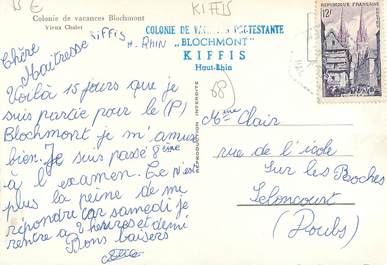 15 €
KIFFIS
Colonie de vacances Blochmont
Vieux Chalet
Kiffis
H. RHIN
COLONIE DE VACANCES PROTESTANTE
„BLOCHMONT"
KIFFIS
Haut-Rhin
RÉPUBLIQUE FRANÇAISE
12F
68
REPRODUCTION INTERDITE
Chère
Maîtresse
Voilà 15 jours que je
suis partie pour le (P)
Blochmont je m'amuse
bien. Je suis passé 8ème
à l'examen. Ce n'est
plus la peine de me
répondre car samedi je
rentre a 2 heures et demi
Bons baisers
Mme Clair
rue de l'école
Sur les Roches
Seloncourt
(Doubs)